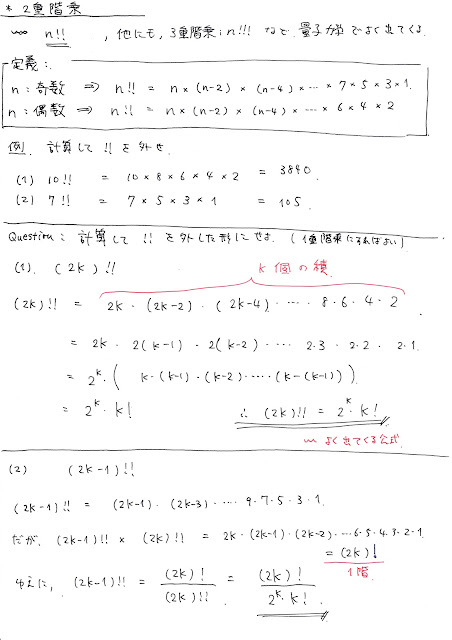 * 2重階乗
〰 n!! , 他にも, 3重階乗; n!!! など. 量子力学でよく出てくる.
定義:.
n : 奇数 ⇒ n!! = n × (n-2) × (n-4) × … × 7 × 5 × 3 × 1.
n : 偶数 ⇒ n!! = n × (n-2) × (n-4) × … × 6 × 4 × 2
例. 計算して !! を外せ.
(1) 10!! = 10 × 8 × 6 × 4 × 2 = 3840.
(2) 7!! = 7 × 5 × 3 × 1 = 105.
Question : 計算して !! を外した形にせよ. (1重階乗にすればよい)
(1). (2k)!!
k個の積
(2k)!! = 2k · (2k-2) · (2k-4) · … · 8 · 6 · 4 · 2
= 2k · 2(k-1) · 2(k-2) · … 2·3 · 2·2 · 2·1.
= 2^k · ( k · (k-1) · (k-2) · … · (k-(k-1)) ).
= 2^k · k! ∴ (2k)!! = 2^k · k!
〰 よく出てくる公式.
(2) (2k-1)!!
(2k-1)!! = (2k-1) · (2k-3) · … 9 · 7 · 5 · 3 · 1.
だが, (2k-1)!! × (2k)!! = 2k · (2k-1) · (2k-2) · … 6 · 5 · 4 · 3 · 2 · 1.
= (2k)!
1階.
ゆえに, (2k-1)!! = (2k)! / (2k)!! = (2k)! / 2^k · k! .